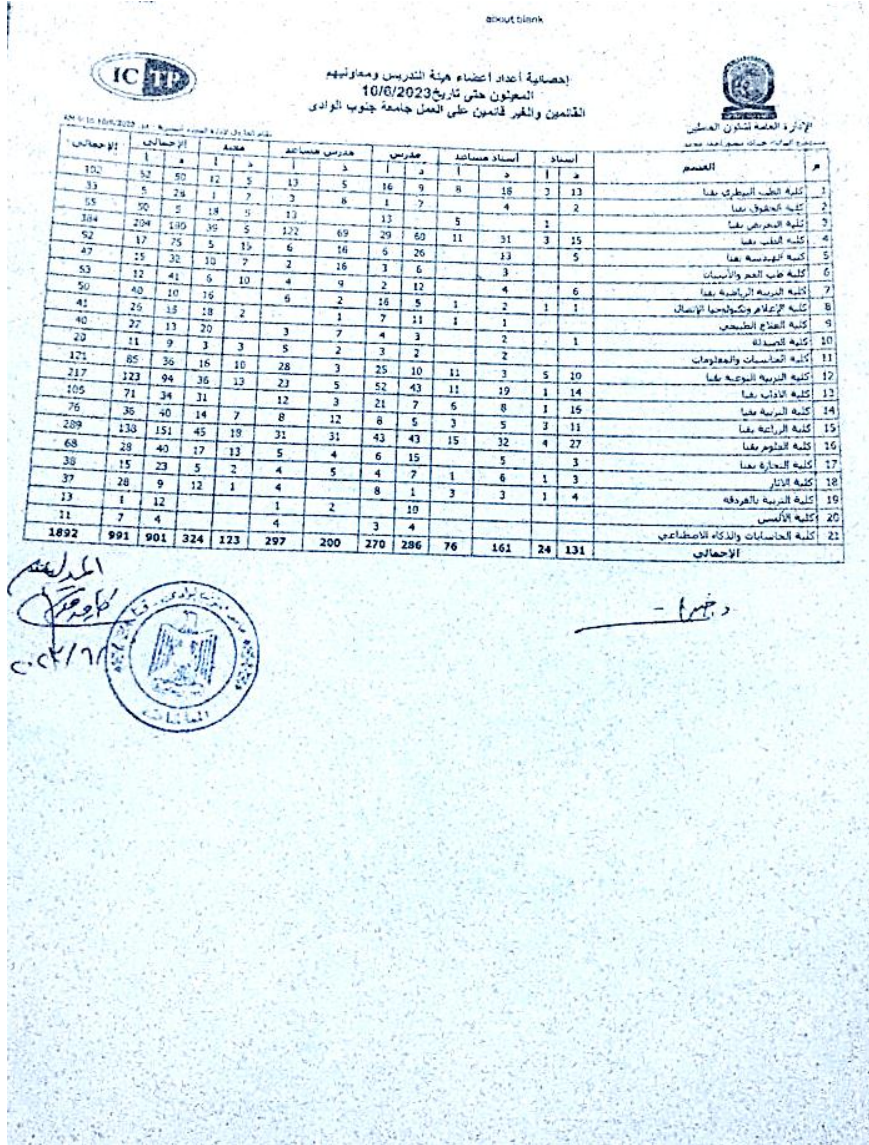 about:blank
IC TP
إحصائية أعداد أعضاء هيئة التدريس ومعاونيهم
المعينون حتى تاريخ 10/6/2023
القائمين والغير قائمين على العمل جامعة جنوب الوادى
الإدارة العامة لشئون العاملين
م القسم أستاذ أستاذ مساعد مدرس مدرس مساعد معيد الإجمالى الإجمالى
د أ د أ د أ د أ د أ د أ
1 كلية الطب البيطرى بقنا 13 3 18 8 9 16 5 13 5 12 50 52 102
2 كلية الحقوق بقنا 2 4 7 1 8 3 7 1 28 5 33
3 كلية التمريض بقنا 1 5 13 13 5 18 5 50 55
4 كلية الطب بقنا 15 3 31 11 60 29 69 122 5 39 180 204 384
5 كلية الهندسة بقنا 5 13 26 6 16 6 15 5 75 17 92
6 كلية طب الفم والأسنان 3 6 3 16 2 7 10 32 15 47
7 كلية التربية الرياضية بقنا 6 4 12 2 9 4 10 6 41 12 53
8 كلية الإعلام وتكنولوجيا الإتصال 1 1 2 1 5 16 2 6 16 10 40 50
9 كلية العلاج الطبيعى 1 1 11 7 1 2 18 15 26 41
10 كلية الصيدلة 1 2 3 4 7 3 20 13 27 40
11 كلية الحاسبات والمعلومات 2 2 3 2 5 3 3 9 11 20
12 كلية التربية النوعية بقنا 10 5 3 11 10 25 3 28 10 16 36 85 121
13 كلية الآداب بقنا 14 1 19 11 43 52 5 23 13 36 94 123 217
14 كلية التربية بقنا 16 1 8 6 7 21 3 12 31 34 71 105
15 كلية الزراعة بقنا 11 3 5 3 5 8 12 8 7 14 40 36 76
16 كلية العلوم بقنا 27 4 32 15 43 43 31 31 18 45 151 138 289
17 كلية التجارة بقنا 3 5 15 6 4 5 13 17 40 28 68
18 كلية الآثار 3 1 6 1 7 4 5 4 2 5 23 15 38
19 كلية التربية بالغردقة 4 1 3 3 1 8 4 1 12 9 28 37
20 كلية الألسن 10 2 1 12 1 13
21 كلية الحاسبات والذكاء الاصطناعى 4 3 4 4 7 11
الإجمالى 131 24 161 76 286 270 200 297 123 324 901 991 1892